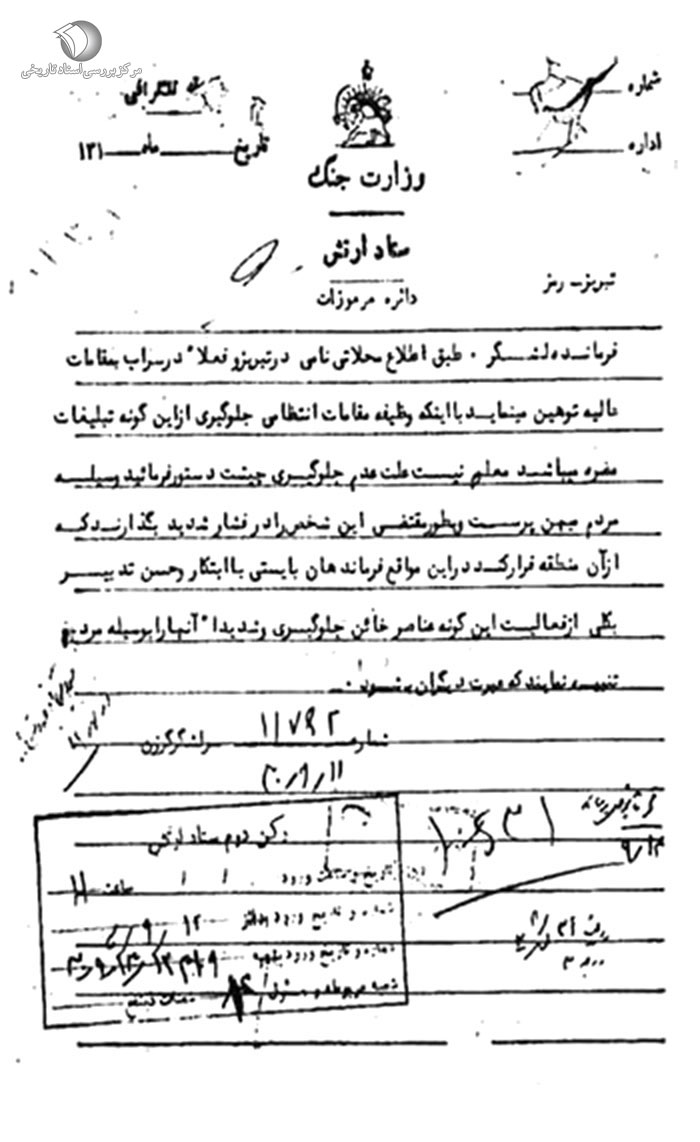 مرکز بررسی اسناد تاریخی
شماره
اداره
تلگرافی
تاریخ ماه ۱۳۱
وزارت جنگ
ستاد ارتش
دائره مرموزات
تبریز - رمز
فرمانده لشگر ۰ طبق اطلاع محلاتی نامی در تبریز و فعلا" در سراب بمقامات
عالیه توهین مینماید با اینکه وظیفه مقامات انتظامی جلوگیری از این گونه تبلیغات
مضره میباشد معلوم نیست علت عدم جلوگیری چیست دستور فرمائید وسیله
مردم میهن پرست و بطور مقتضی این شخص را در فشار شدید بگذارند که
از آن منطقه فرار کند در این مواقع فرماندهان بایستی با ابتکار و حسن تدبیر
بکلی از فعالیت این گونه عناصر خائن جلوگیری و شدیدا" آنها را بوسیله مردم
تنبیه نمایند که عبرت دیگران بشود ۰
شماره ۱۱۷۹۲ سرلشگر گرزن
۲۰/۹/۱۱
۱۰۶۳۱
رکن دوم ستاد ارتش
ساعت ۱۱
شماره و تاریخ ورود بدفتر ۱۲/۹/
شماره و تاریخ ورود
شعبه مربوطه و مسئول